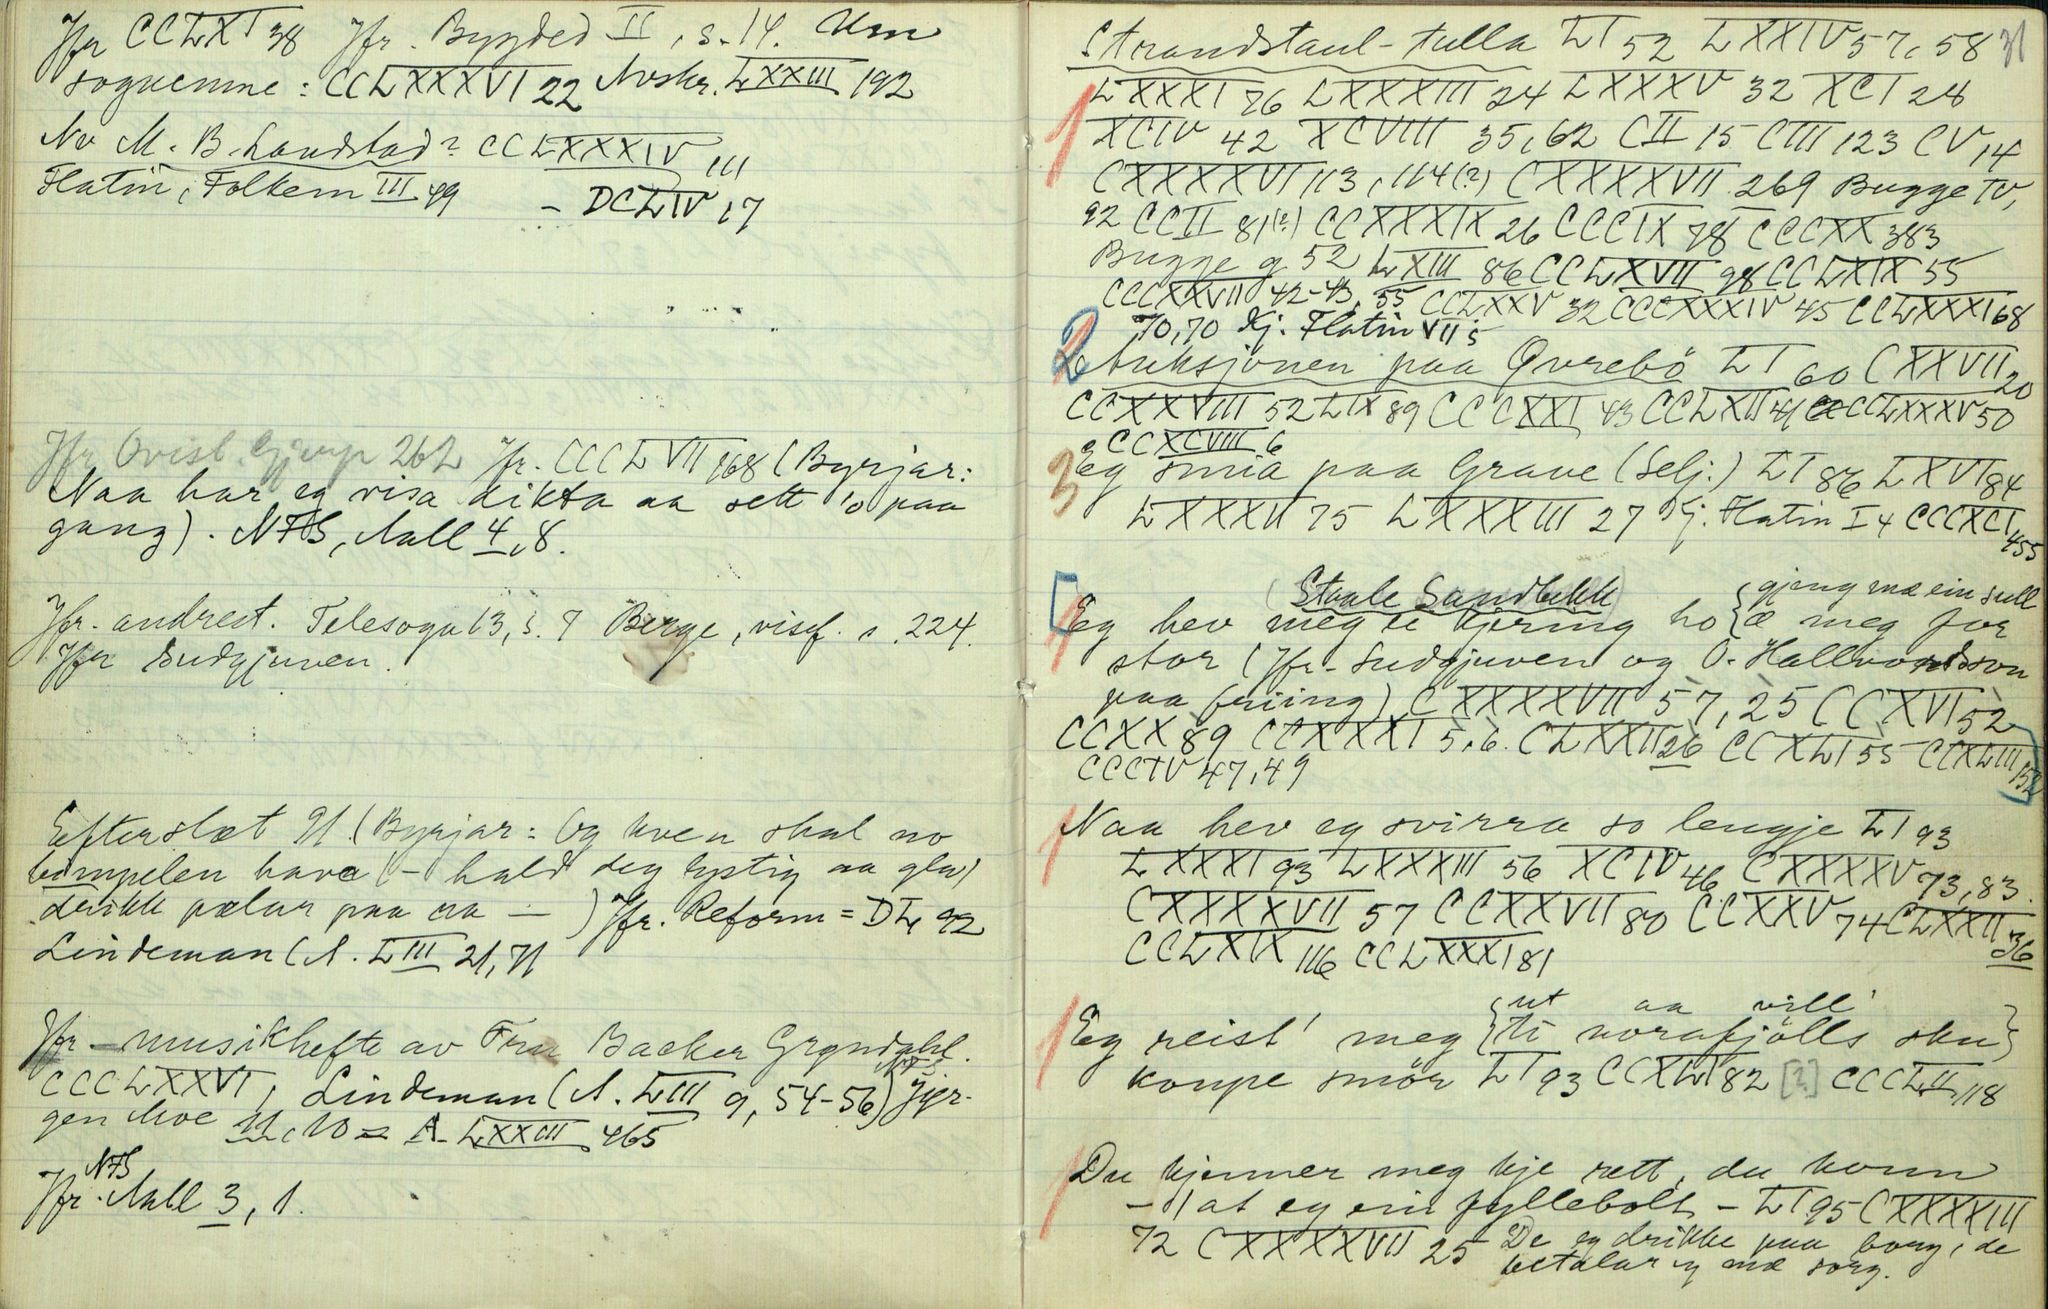 Jfr CCLXI 38 Jfr. Bygded II, s. 14. Um
soguemne: CCLXXXVI 22 Avskr. LXXIII 192
Av M. B. Landstad? CCLXXXIV 111
Flatin, Folkem III 49 - DCLIV 17
Jfr Qvisl. 262 Jfr. CCCLVII 168 (Byrjar:
Naa har eg visa dikta aa sett 'o paa
gang). NFS, Aall 4, 8.
Jfr. andrest. Telesoga 13, s. 9 Berge, visef. s. 224.
Jfr Sudgjuven.
Efterslæt 91. (Byrjar: Og kven skal no
bimpelen hava (- hald deg lystig aa gla)
drikk pælar paa aa — ) Jfr. Reform = DL, 92
Lindeman (A. LIII 21, 71
Jfr - musikhefte av Fru Backer Grøndahl.
CCCLXXVI, Lindeman (A. LIII 9, 54-56) Jør-
gen Moe 11, 10 = A LXXIII 465
NFS
Jfr. Aall 3, 1.
31
Strandstaul-tulla LI 52 LXXIV 57, 58
1 LXXXI 76 LXXXIII 24 LXXXV 32 XCI 28
XCIV 42 XCVIII 35, 62 CII 15 CIII 123 CV 14
CXXXXVI 113, 114(?) CXXXXVII 269 Bugge IV,
92 CCII 81(?) CCXXXIX 26 CCCIX 78 CCCXX 383
Bugge g 52 LXIII 86 CCLXVII 98 CCLXIX 55
CCCXXVII 42-43, 55 CCLXXV 32 CCCXXXIV 45 CCLXXXI 68
70, 70 Kj. Flatin VII 5
2 Auksjonen paa Øvrebö LI 60 CXXVII 20
CCXXVIII 52 LIX 89 CCCXXI 43 CCLXII 41 CCLXXXV 50
CCXCVIII 6
3 Eg smia paa Grave (Selj.) LI 86 LXVI 84
LXXXII 75 LXXXIII 27 Kj. Flatin I 4 CCCXCI 455
(Staale Sandbekk) gjeng mæ ein sull
1 Eg hev meg ei kjæring ho { æ meg for
stor (Jfr. Sudgjuven og O. Hallvordsson
paa friing) CXXXXVII 57, 25 CCXVI 52
CCXX 89 CCXXXI 5, 6. CLXXII 26 CCXLI 55 CCXLIII 152
CCCIV 47, 49
1 Naa hev eg svirra so lengje LI 93
LXXXI 93 LXXXIII 56 XCIV 46 CXXXXV 73, 83.
CXXXXVII 57 CCXXVII 80 CCXXV 74 CLXXII 36
CCLXIX 116 CCLXXXI 81
ut aa vill'
1 Eg reist' meg {ti norafjölls sku}
koupe smör LI 93 CCXLI 82 [?] CCCLII 118
1 Du kjenner meg kje rett, du konn
- at eg ein fyllebolt - LI 95 CXXXXIII
72 CXXXXVII 25 De eg drikke paa borg, de
betalar eg mæ sorg.